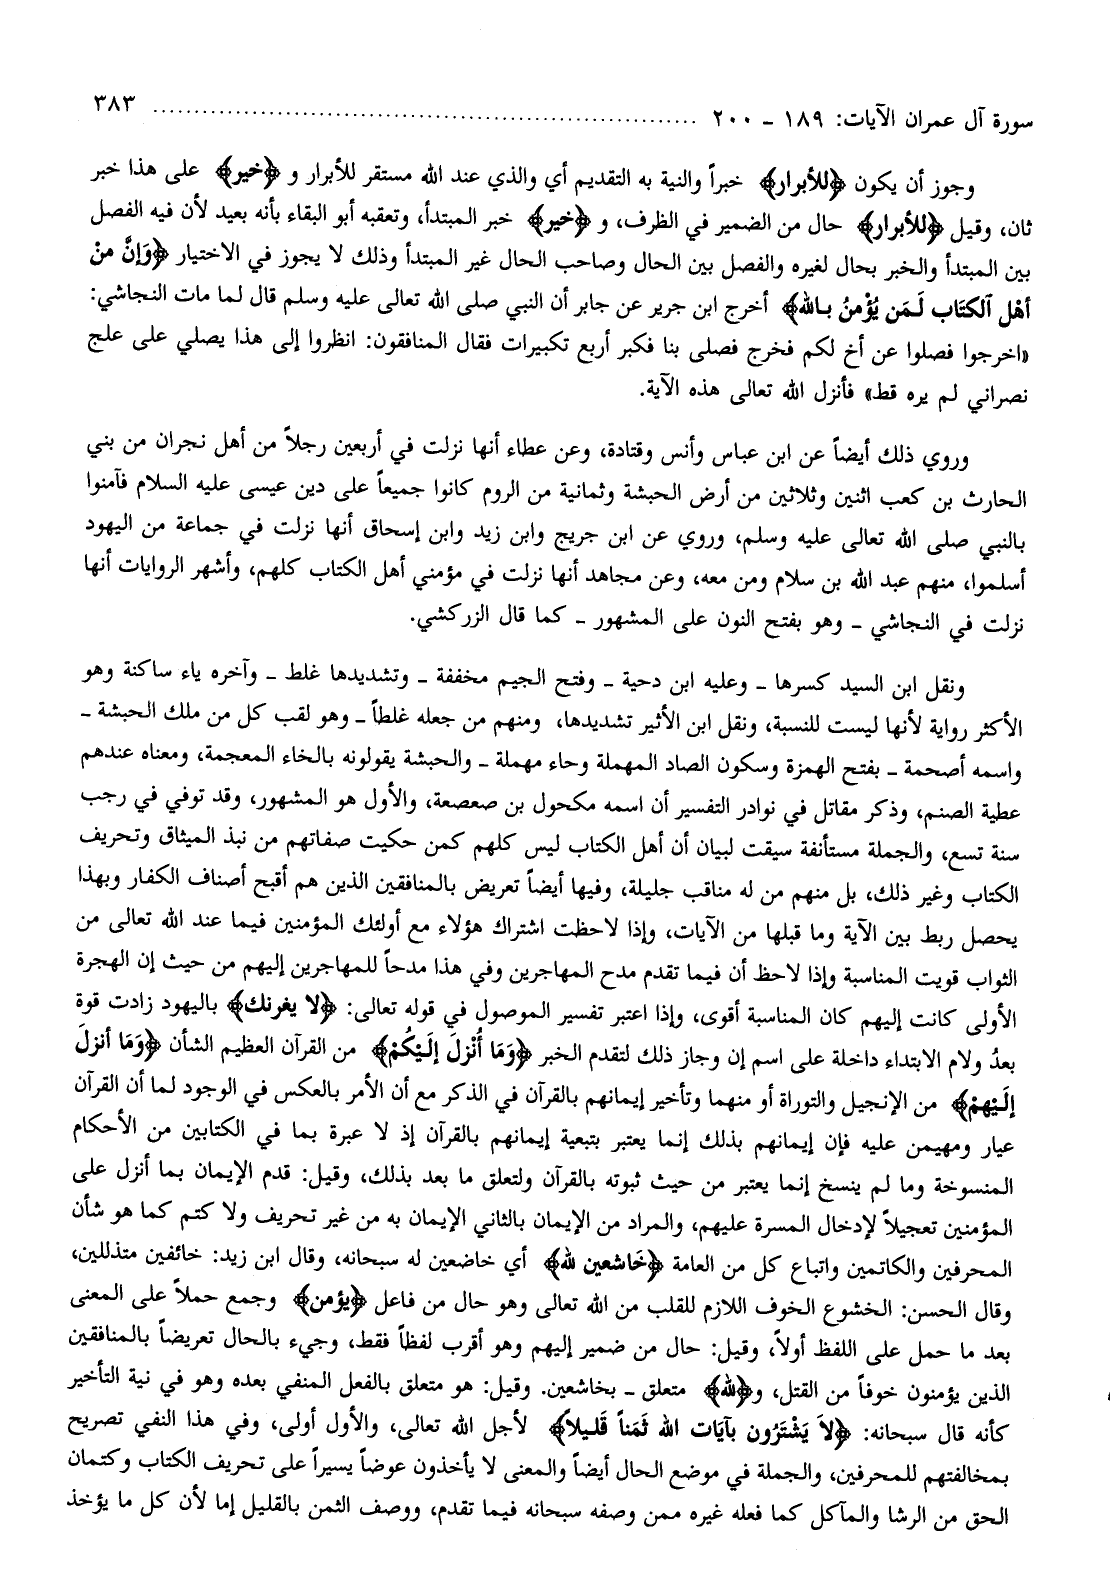 سورة آل عمران الآيات: ١٨٩ ـ ٢٠٠ ................................................................ ٣٨٣
وجوز أن يكون ﴿للأبرار﴾ خبراً والنية به التقديم أي والذي عند الله مستقر للأبرار و ﴿خير﴾ على هذا خبر
ثان، وقيل ﴿للأبرار﴾ حال من الضمير في الظرف، و ﴿خير﴾ خبر المبتدأ، وتعقبه أبو البقاء بأنه بعيد لأن فيه الفصل
بين المبتدأ والخبر بحال لغيره والفصل بين الحال وصاحب الحال غير المبتدأ وذلك لا يجوز في الاختيار ﴿وَإنَّ منْ
أهْل ٱلكتَاب لَـمَن يُؤْمنُ بـالله﴾ أخرج ابن جرير عن جابر أن النبي صلى الله تعالى عليه وسلم قال لما مات النجاشي:
«اخرجوا فصلوا عن أخ لكم فخرج فصلى بنا فكبر أربع تكبيرات فقال المنافقون: انظروا إلى هذا يصلي على علج
نصراني لم يره قط» فأنزل الله تعالى هذه الآية.
وروي ذلك أيضاً عن ابن عباس وأنس وقتادة، وعن عطاء أنها نزلت في أربعين رجلاً من أهل نجران من بني
الحارث بن كعب اثنين وثلاثين من أرض الحبشة وثمانية من الروم كانوا جميعاً على دين عيسى عليه السلام فآمنوا
بالنبي صلى الله تعالى عليه وسلم، وروي عن ابن جريج وابن زيد وابن إسحاق أنها نزلت في جماعة من اليهود
أسلموا، منهم عبد الله بن سلام ومن معه، وعن مجاهد أنها نزلت في مؤمني أهل الكتاب كلهم، وأشهر الروايات أنها
نزلت في النجاشي ـ وهو بفتح النون على المشهور ـ كما قال الزركشي.
ونقل ابن السيد كسرها ـ وعليه ابن دحية ـ وفتح الجيم مخففة ـ وتشديدها غلط ـ وآخره ياء ساكنة وهو
الأكثر رواية لأنها ليست للنسبة، ونقل ابن الأثير تشديدها، ومنهم من جعله غلطاً ـ وهو لقب كل من ملك الحبشة ـ
واسمه أصحمة ـ بفتح الهمزة وسكون الصاد المهملة وحاء مهملة ـ والحبشة يقولونه بالخاء المعجمة، ومعناه عندهم
عطية الصنم، وذكر مقاتل في نوادر التفسير أن اسمه مكحول بن صعصعة، والأول هو المشهور، وقد توفي في رجب
سنة تسع، والجملة مستأنفة سيقت لبيان أن أهل الكتاب ليس كلهم كمن حكيت صفاتهم من نبذ الميثاق وتحريف
الكتاب وغير ذلك، بل منهم من له مناقب جليلة، وفيها أيضاً تعريض بالمنافقين الذين هم أقبح أصناف الكفار وبهذا
يحصل ربط بين الآية وما قبلها من الآيات، وإذا لاحظت اشتراك هؤلاء مع أولئك المؤمنين فيما عند الله تعالى من
الثواب قويت المناسبة وإذا لاحظ أن فيما تقدم مدح المهاجرين وفي هذا مدحاً للمهاجرين إليهم من حيث إن الهجرة
الأولى كانت إليهم كان المناسبة أقوى، وإذا اعتبر تفسير الموصول في قوله تعالى: ﴿لا يغرنك﴾ باليهود زادت قوة
بعدُ ولام الابتداء داخلة على اسم إن وجاز ذلك لتقدم الخبر ﴿وَمَا أُنْزلَ إلَـيْكُمْ﴾ من القرآن العظيم الشأن ﴿وَمَا أنزلَ
إلَـيْهِمْ﴾ من الإنجيل والتوراة أو منهما وتأخير إيمانهم بالقرآن في الذكر مع أن الأمر بالعكس في الوجود لما أن القرآن
عيار ومهيمن عليه فإن إيمانهم بذلك إنما يعتبر بتبعية إيمانهم بالقرآن إذ لا عبرة بما في الكتابين من الأحكام
المنسوخة وما لم ينسخ إنما يعتبر من حيث ثبوته بالقرآن ولتعلق ما بعد بذلك، وقيل: قدم الإيمان بما أنزل على
المؤمنين تعجيلاً لإدخال المسرة عليهم، والمراد من الإيمان بالثاني الإيمان به من غير تحريف ولا كتم كما هو شأن
المحرفين والكاتمين واتباع كل من العامة ﴿خَاشعين لله﴾ أي خاضعين له سبحانه، وقال ابن زيد: خائفين متذللين،
وقال الحسن: الخشوع الخوف اللازم للقلب من الله تعالى وهو حال من فاعل ﴿يؤمن﴾ وجمع حملاً على المعنى
بعد ما حمل على اللفظ أولاً، وقيل: حال من ضمير إليهم وهو أقرب لفظاً فقط، وجيء بالحال تعريضاً بالمنافقين
الذين يؤمنون خوفاً من القتل، و﴿لله﴾ متعلق ـ بخاشعين. وقيل: هو متعلق بالفعل المنفي بعده وهو في نية التأخير
كأنه قال سبحانه: ﴿لاَ يَشْتَرُون بآيَات الله ثَمَناً قَلـيلاً﴾ لأجل الله تعالى، والأول أولى، وفي هذا النفي تصريح
بمخالفتهم للمحرفين، والجملة في موضع الحال أيضاً والمعنى لا يأخذون عوضاً يسيراً على تحريف الكتاب وكتمان
الحق من الرشا والمآكل كما فعله غيره ممن وصفه سبحانه فيما تقدم، ووصف الثمن بالقليل إما لأن كل ما يؤخذ